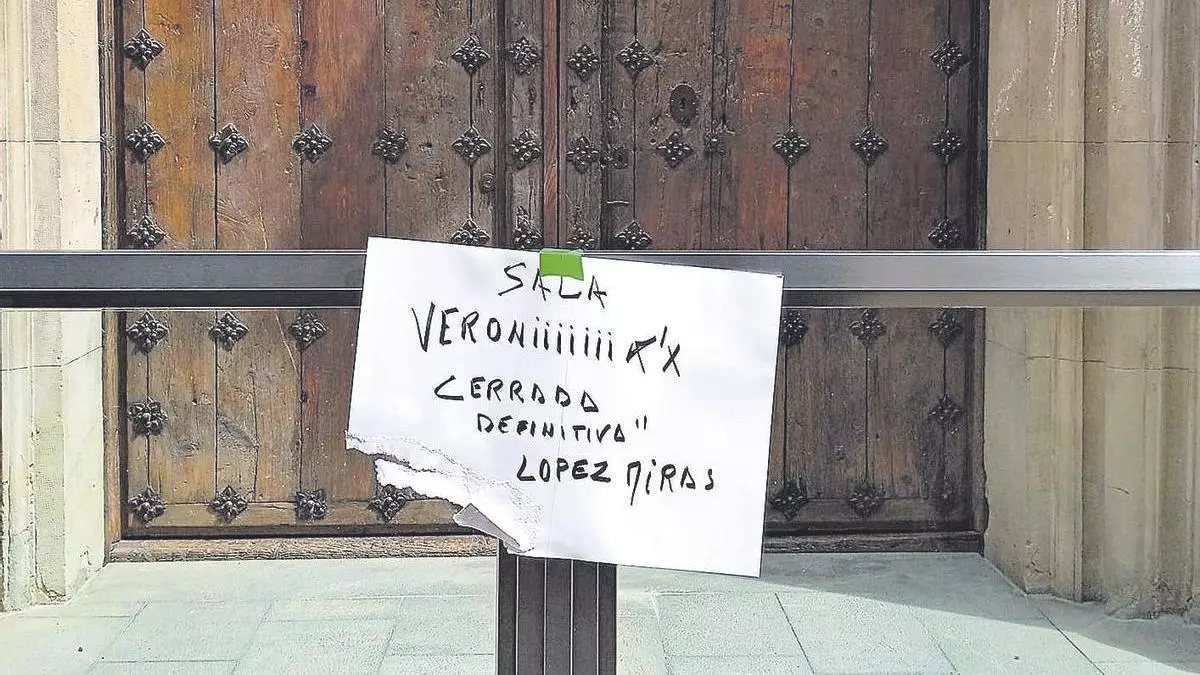 SALA
VERONiiiiiii K'X
CERRADA
DEFINITIVA"
LOPEZ MiRAS